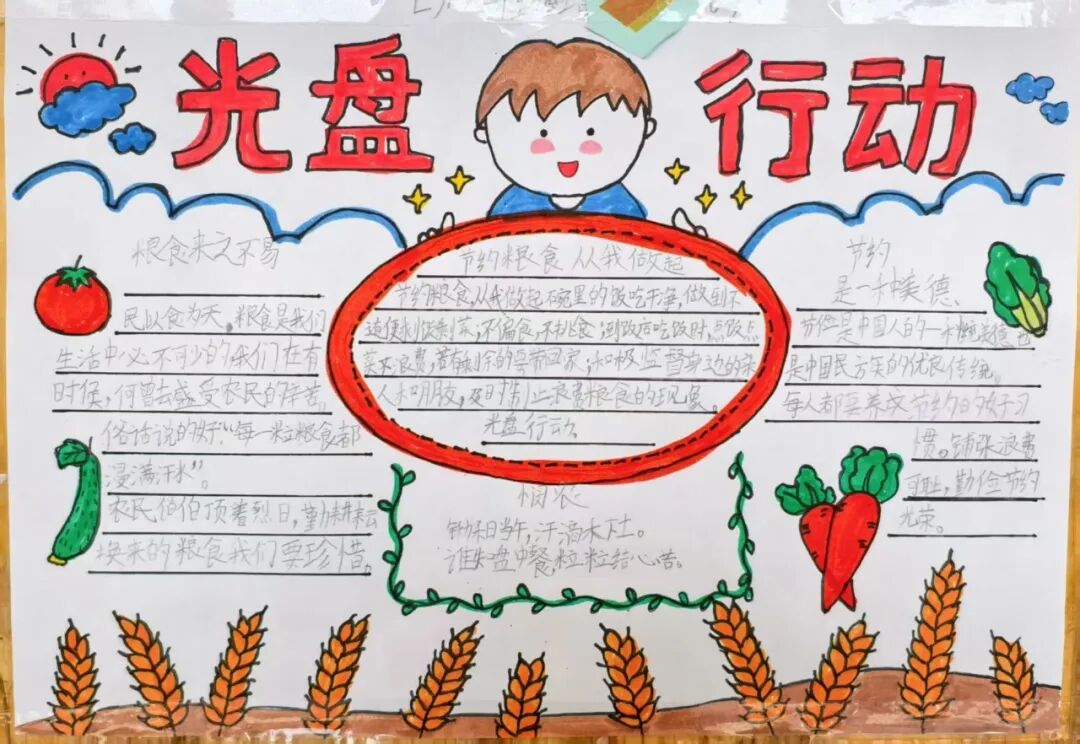 光盘行动
粮食来之不易
民以食为天,粮食是我们
生活中必不可少的我们在有
时候,何曾去感受农民的辛苦。
俗话说的好:“每一粒粮食都
浸满汗水”。
农民伯伯顶着烈日,勤耕耘
换来的粮食我们要珍惜。
节约粮食从我做起
节约粮食,从我做起不碗里的饭吃干净,做到不
剩饭剩菜,不偏食,不挑食;到饭店吃饭时,点饭点
菜不浪费,若有剩余的要带回家,积极监督身边的亲
人和朋友,及时制止浪费粮食的现象。
光盘行动
悯农
锄禾日当午,汗滴禾下土。
谁知盘中餐,粒粒皆辛苦。
节约
是一种美德、
节俭是中国人的一种美德也
是中国民族的优良传统。
每人都要养成节约的好习
惯。铺张浪费
可耻,勤俭节约
光荣。